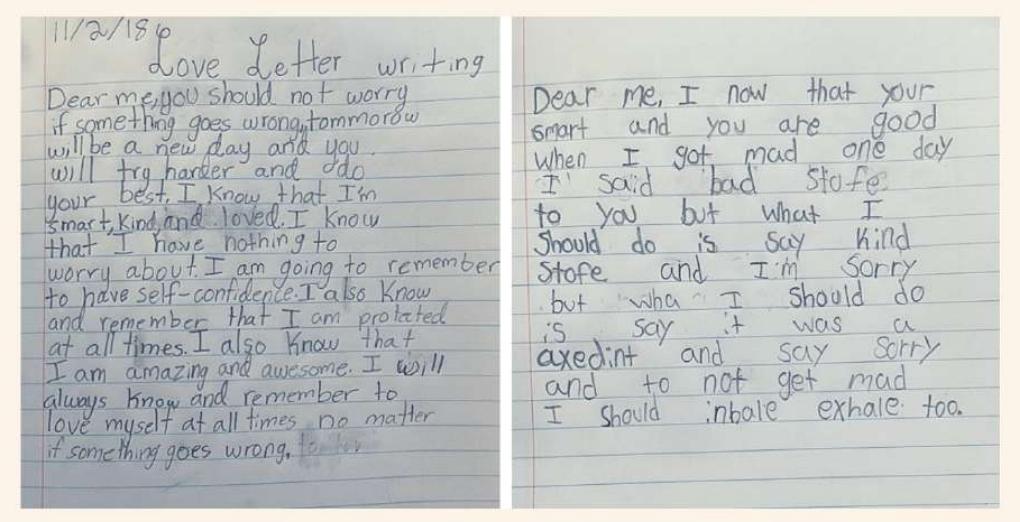 11/2/18
Love Letter writing
Dear me, you should not worry
if something goes wrong, tommorow
will be a new day and you
will try harder and do
your best. I know that I'm
smart, kind, and loved. I know
that I have nothing to
worry about. I am going to remember
to have self-confidence. I also know
and remember that I am protated
at all times. I also know that
I am amazing and awesome. I will
always know and remember to
love myself at all times no matter
if something goes wrong.
Dear me, I now that your
smart and you are good
when I got mad one day
I said bad stofe
to you but what I
Should do is say kind
Stofe and I'm sorry
but wha I should do
is say it was a
axedint and say sorry
and to not get mad
I should inhale exhale too.